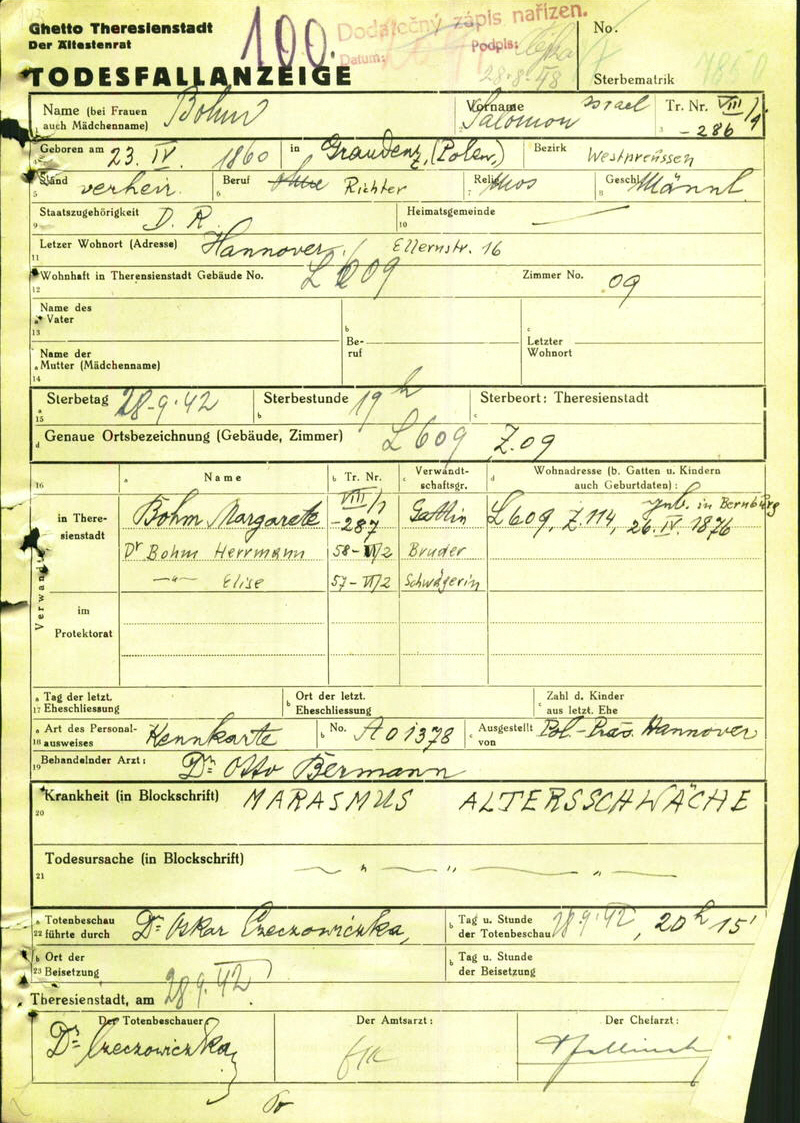 Ghetto Theresienstadt
Der Ältestenrat
100.
Dodatečný zápis nařízen.
Datum: Podpis:
28.8.48
No.
TODESFALLANZEIGE
Sterbematrik 7850
Name (bei Frauen auch Mädchenname) Böhm Vorname Salomon Israel Tr. Nr. VIII/1 -286
Geboren am 23. IV. 1860 in Graudenz, (Polen) Bezirk Westpreussen
Stand verheir. Beruf Richter Relig. Mos Geschl. Männl.
Staatszugehörigkeit D. R. Heimatsgemeinde
Letzer Wohnort (Adresse) Hannover, Ellernstr. 16
Wohnhaft in Therensienstadt Gebäude No. L 609 Zimmer No. 09
Name des Vater Beruf Letzter Wohnort
Name der Mutter (Mädchenname)
Sterbetag 28.9.42 Sterbestunde 19h Sterbeort: Theresienstadt
Genaue Ortsbezeichnung (Gebäude, Zimmer) L 609 Z.09
Name Tr. Nr. Verwandtschaftsgr. Wohnadresse (b. Gatten u. Kindern auch Geburtdaten):
Verwandte
in Theresienstadt Böhm Margarete VIII/1 -287 Gattin L609, Z.114, geb. in Bernburg 26. IV. 1876
Dr Böhm Herrmann 58-VI/2 Bruder
-"- Elise 57-VI/2 Schwägerin
im Protektorat
Tag der letzt. Eheschliessung Ort der letzt. Eheschliessung Zahl d. Kinder aus letzt. Ehe
Art des Personalausweises Kennkarte No. A 01378 Ausgestellt von Pol.-Präs. Hannover
Behandelnder Arzt: Dr. Otto Bermann
Krankheit (in Blockschrift) MARASMUS ALTERSSCHWÄCHE
Todesursache (in Blockschrift) — " — " — " —
Totenbeschau führte durch Dr. Oskar Czeczowiczka, Tag u. Stunde der Totenbeschau 28.9.42, 20h 15'
Ort der Beisetzung Tag u. Stunde der Beisetzung
Theresienstadt, am 28.9.42
Der Totenbeschauer: Der Amtsarzt: Der Chefarzt:
Dr. Czeczowiczka